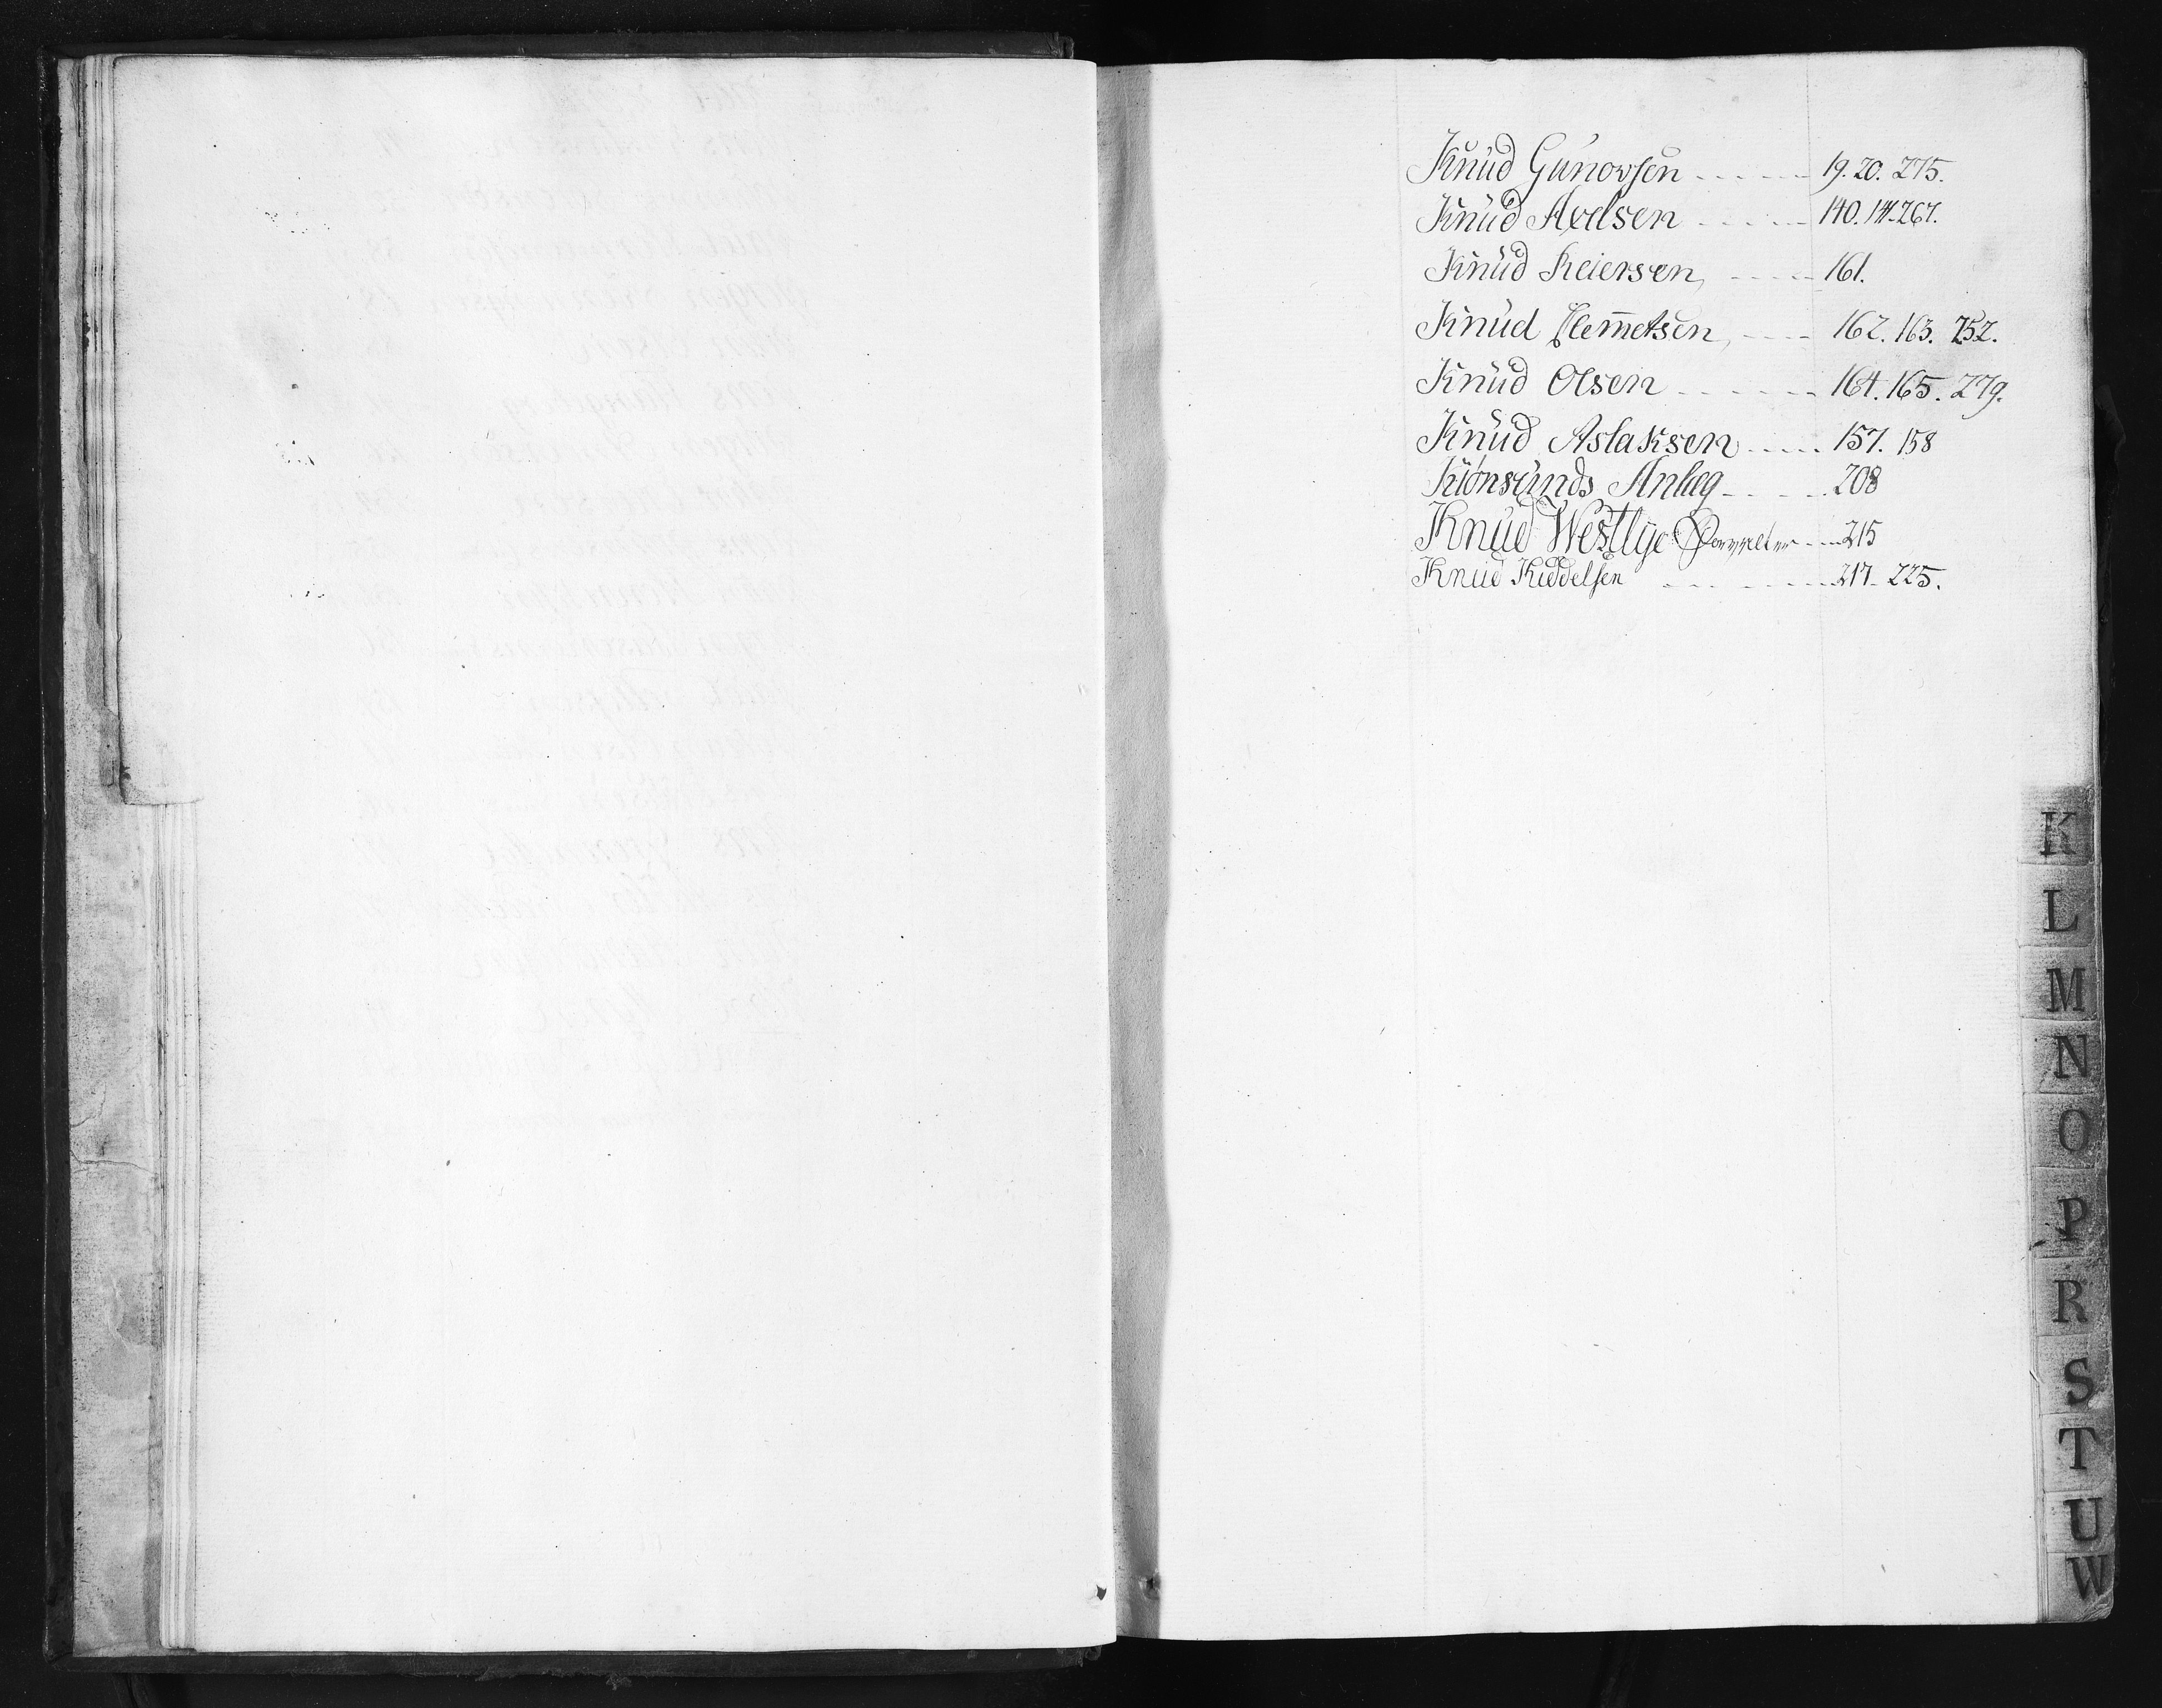 Knud Gunovsen - - - - - 19. 20. 275.
Knud Axelsen - - - - - 140. 141. 267.
Knud Reiersen, - - - - 161.
Knud Clem̄etsen, - - - - 162. 163. 252.
Knud Olsen - - - - - - 164. 165. 279.
Knud Aslaksen - - - - 157. 158
Kiønsunds Anlæg - - - - - 208
Knud Westlye - - - 215
Knud Kiddelsen - - - - - - 217 - 225.
K
L
M
N
O
P
R
S
T
U
W